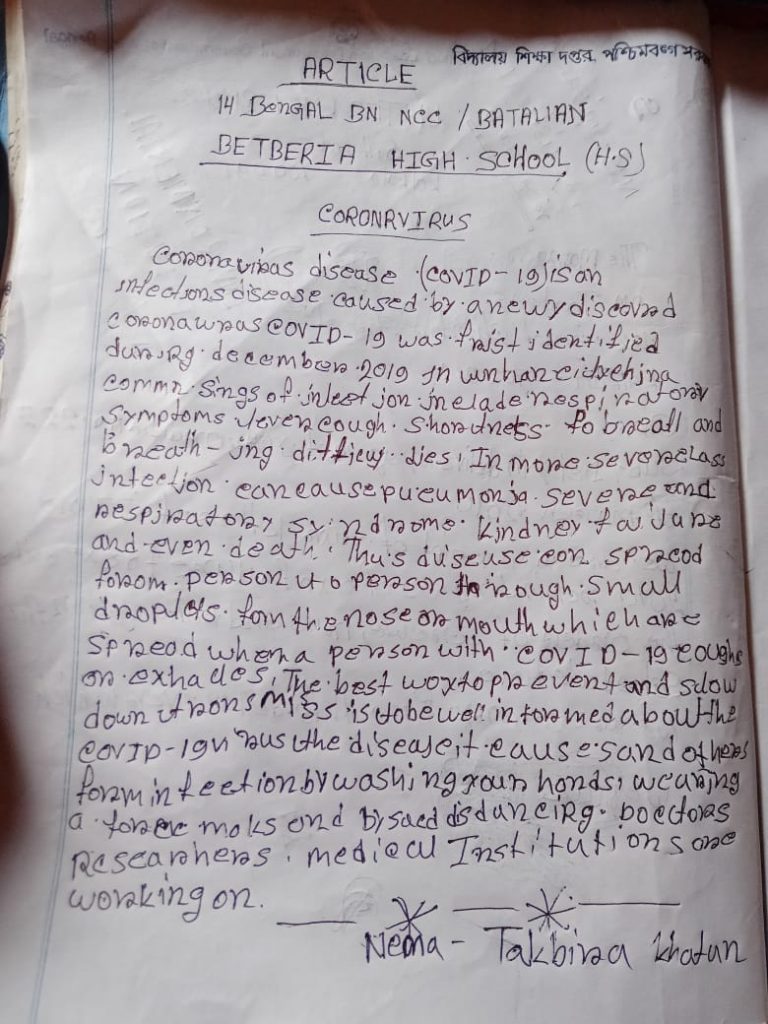 বিদ্যালয় শিক্ষা দপ্তর, পশ্চিমবঙ্গ
ARTICLE
14 BENGAL BN NCC / BATALIAN
BETBERIA HIGH SCHOOL (H.S)
CORONAVIRUS
Coronavirus disease (COVID-19) is an
disease caused by a newy discovrd
COVID-19 was frist identified
december 2019 in
sings of infection include respiratory
symptoms fever cough. shortness to breath and
breath-ing. In more severe
infection can cause severe and
respiratory syndrome. kindney
and even death. This disease can spread
person to person through small
droplets. from the nose or mouth which are
spread when a person with COVID-19 coughs
or exhales. The best way to prevent and slow
down transmiss is to be well informed about the
COVID-19 virus the disease it causes and others
form infection by washing your hands, wearing
a moks and by disdancing. Doctors
Researhers, medical Institutions are
working on.
Nema - Takbira Khatun